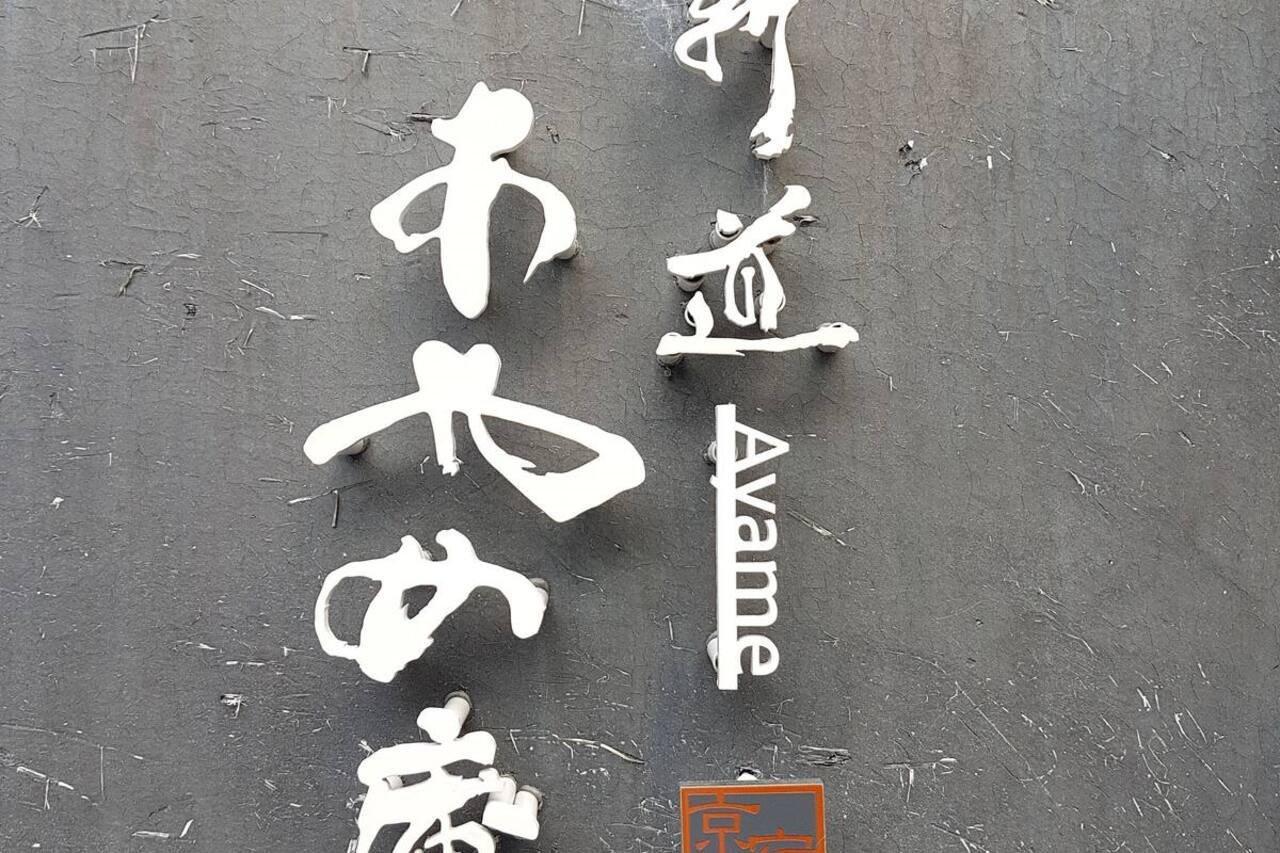 新道
Ayame
あやめ
京